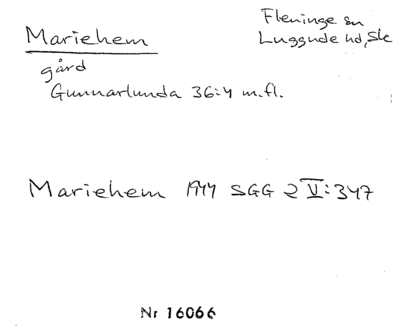 Mariehem
Fleninge sn
Luggude hd, Sk
gård
Gunnarlunda 36:4 m.fl.
Mariehem 1944 SGG 2 V:347
Nr 16066